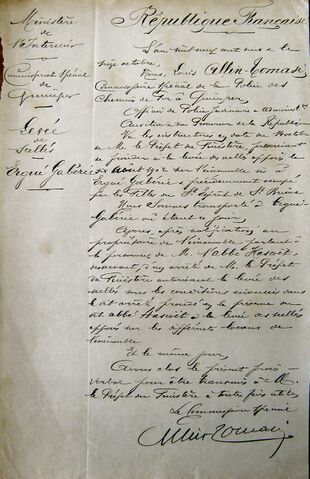 Ministère
de
l'Intérieur
Commissariat Spécial
de
Quimper
Levée
de
Scellés
Ergué Gabéric
République Française
L'an mil neuf cent deux et le
seize octobre
Nous, Louis Albin-Tomasi
Commissaire Spécial de la Police des
Chemins de Fer à Quimper
Officier de Police Judiciaire
Auxiliaire du Procureur de la République
Vu les instructions en date de
de M. le Préfet du Finistère prescrivant
de procéder à la levée des scellés apposés le
six Août 1902 sur l'immeuble sis à
Ergué Gabéric précédemment occupé
par les Filles du St Esprit de St Brieuc
Nous sommes transporté à Ergué-
Gabéric où étant ce jour,
Après, après notification au
propriétaire de l'immeuble parlant à
la personne de M. l'abbé Hascoët,
desservant, d'un arrêté de M. le Préfet
du Finistère autorisant la levée des
scellés sous les conditions énoncées dans
le dit arrêté, procédé en la présence du
dit abbé Hascoët à la levée des scellés
apposés sur les différents locaux de
l'immeuble
Et le même jour,
Avons clos le présent procès-
verbal pour être transmis à M.
le Préfet du Finistère à toutes fins utiles
Le Commissaire Spécial
Albin Tomasi